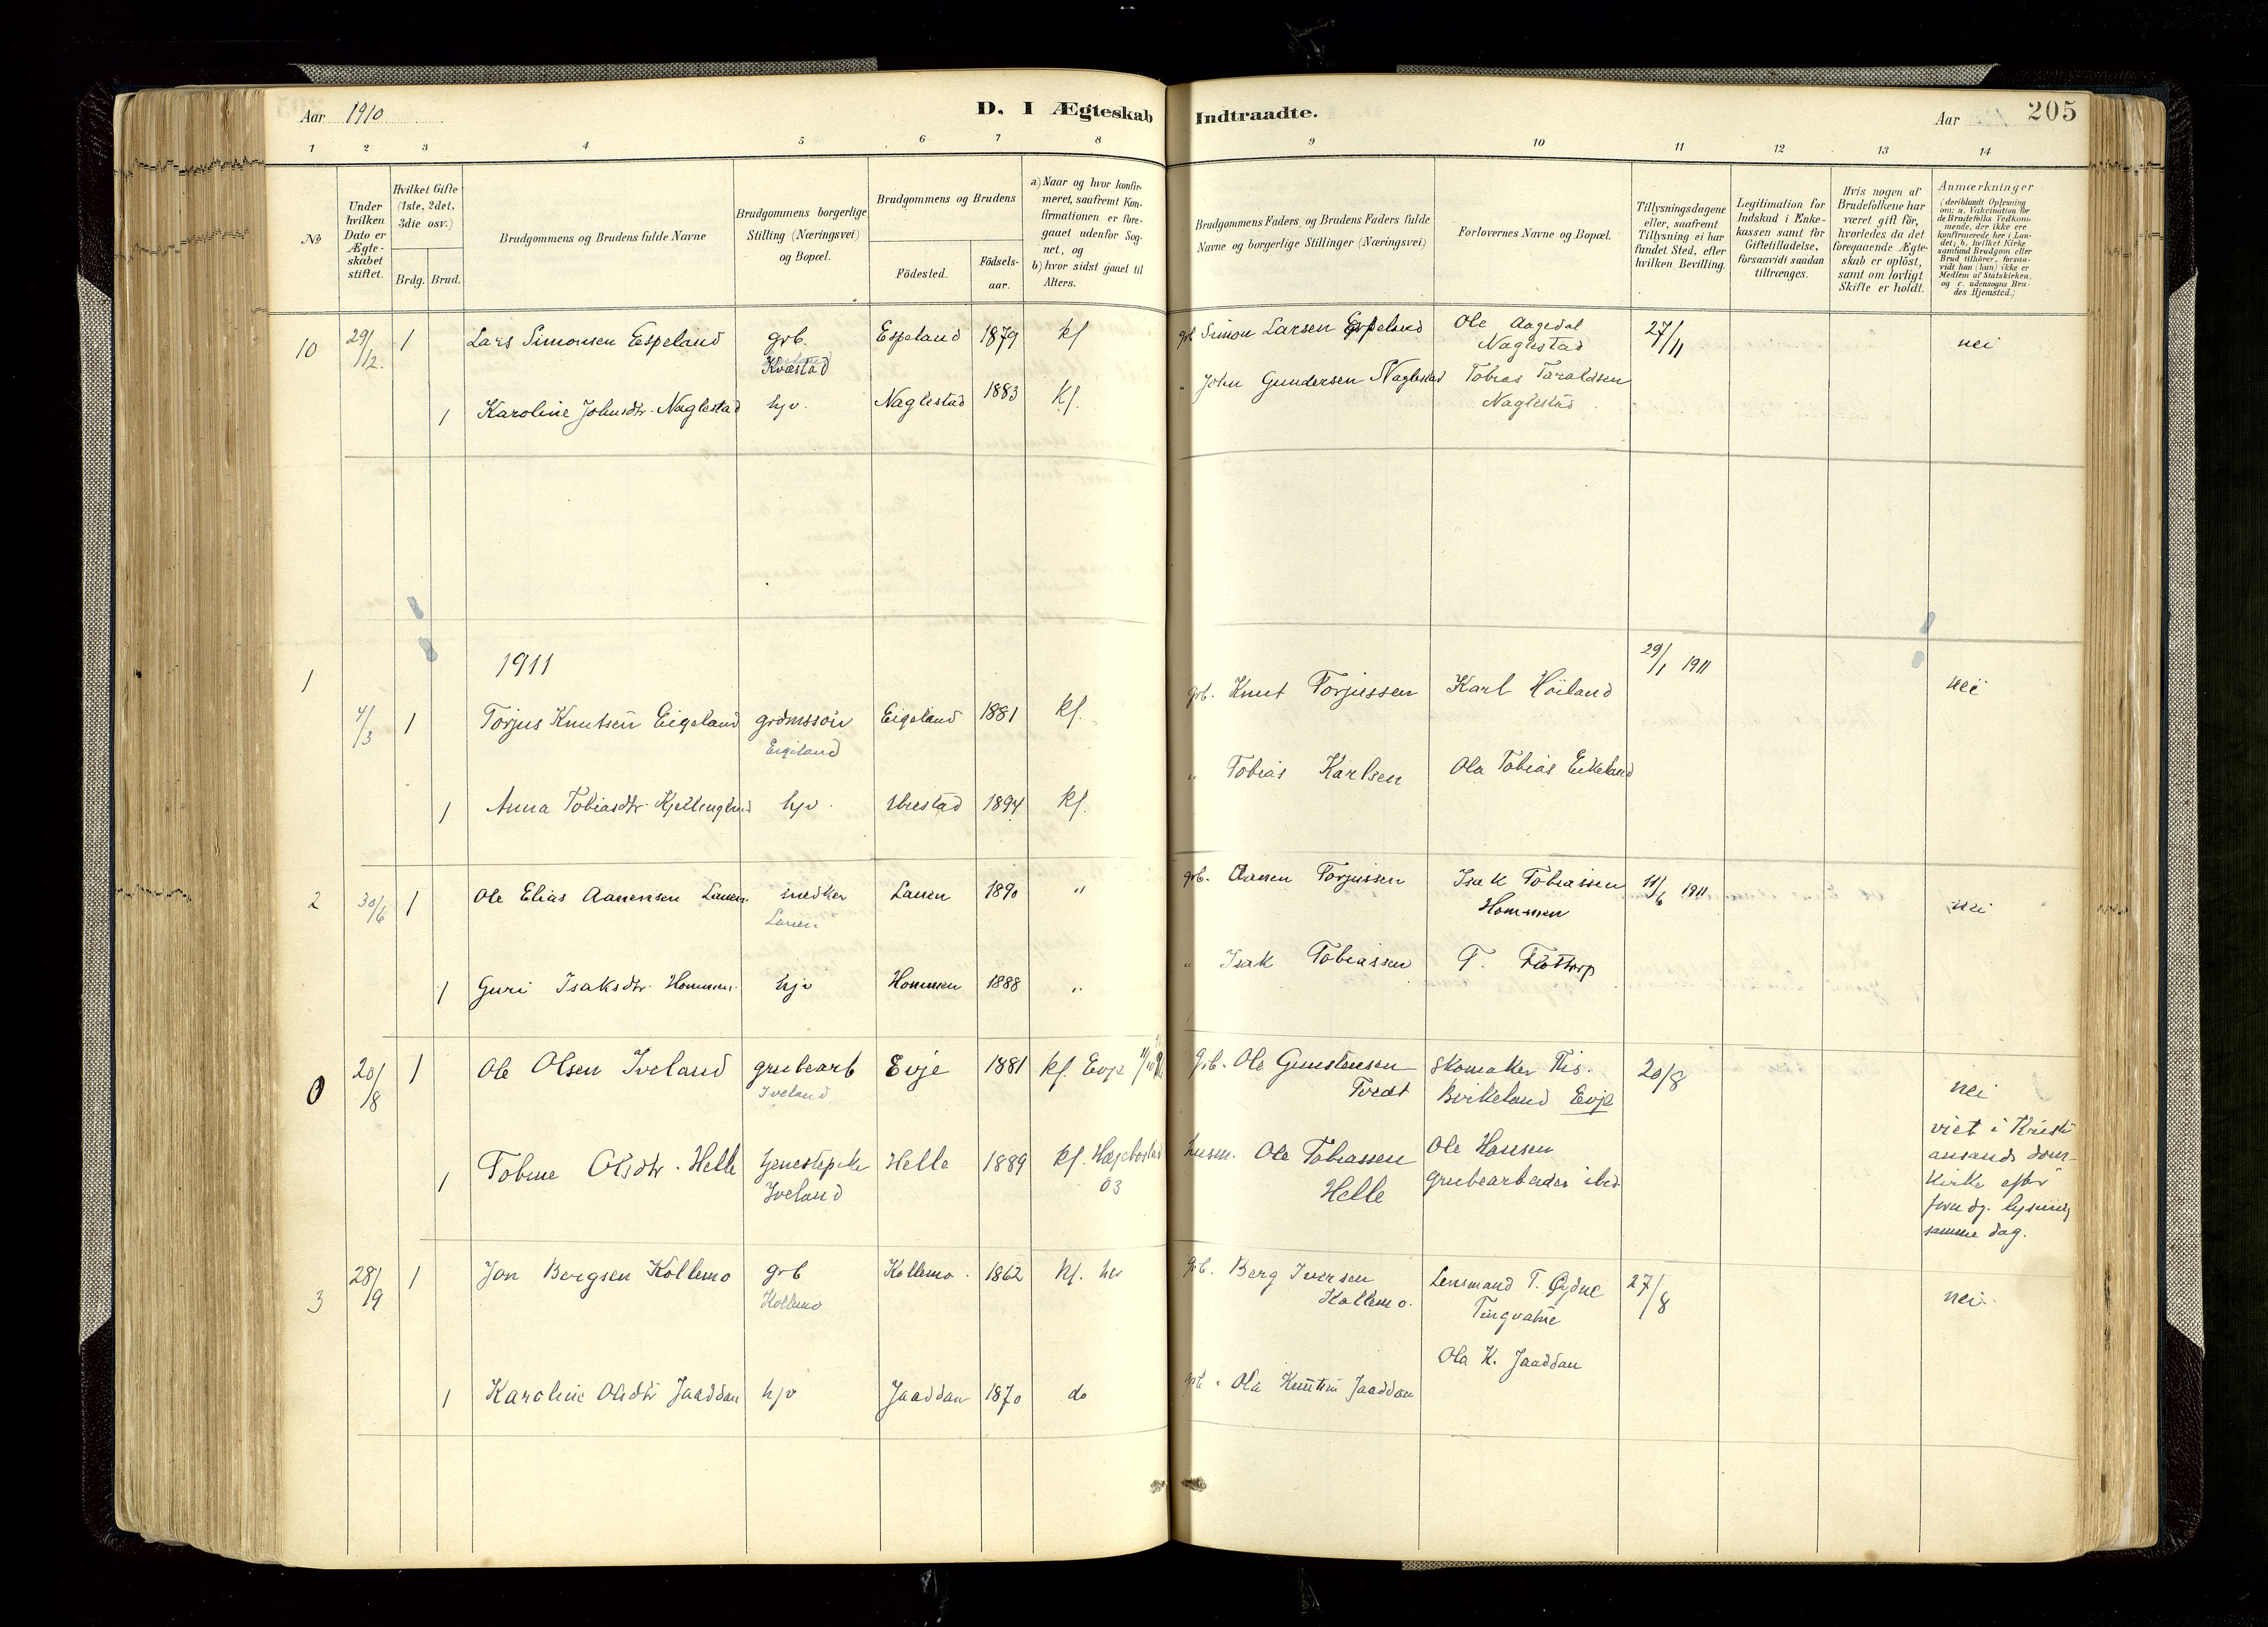 Aar 1910
D. I Ægteskab Indtraadte.
Aar
205
1 2 3 4 5 6 7 8 9 10 11 12 13 14
No
Under hvilken Dato er Ægte-skabet stiftet.
Hvilket Gifte (1ste, 2det, 3die osv.)
Brdg. Brud.
Brudgommens og Brudens fulde Navne
Brudgommens borgerlige Stilling (Næringsvei) og Bopæl.
Brudgommens og Brudens
Födested.
Födsels-aar.
a) Naar og hvor konfir-meret, saafremt Kon-firmationen er fore-gaaet udenfor Sog-net, og
b) hvor sidst gaaet til Alters.
Brudgommens Faders og Brudens Faders fulde Navne og borgerlige Stillinger (Næringsvei)
Forlovernes Navne og Bopæl.
Tillysningsdagene eller, saafremt Tillysning ei har fundet Sted, efter hvilken Bevilling.
Legitimation for Indskud i Enke-kassen samt for Giftetilladelse, forsaavidt saadan tiltrænges.
Hvis nogen af Brudefolkene har været gift för, hvorledes da det foregaaende Ægte-skab er oplöst, samt om lovligt Skifte er holdt.
Anmærkninger (deriblandt Oplysning om: a. Vakcination for de Brudefolks Vedkom-mende, der ikke ere konfirmerede her i Lan-det; b. hvilket Kirke samfund Brudgom eller Brud tilhörer, forsaa-vidt han (hun) ikke er Medlem af Statskirken, og c. udensogns Bru-des Hjemsted.)
10 29/12. 1 Lars Simonsen Espeland grb. Kvæstad Espeland 1879 kf grb Simon Larsen Espeland Ole Aagedal Naglestad 27/11 nei
1 Karoline Johnsdtr. Naglestad hjv. Naglestad 1883 kf. " John Gundersen Naglestad Tobias Taraldsen Naglestad
1911
1 4/3 1 Torjus Knutsen Eigeland grdmssön Eigeland Eigeland 1881 kf. grb. Knut Torjussen Karl Höiland 29/1 1911 nei
1 Anna Tobiasdtr. Kjellingland hjv. 1894 kf. " Tobias Karlsen Ola Tobias Eikeland
2 30/6 1 Ole Elias Aanensen Lauen snedker Lauen Lauen 1890 " grb. Aanen Torjussen Isak Tobiassen Hommen 11/6 1911 nei
1 Guri Isaksdtr. Hommen hjv Hommen 1888 " " Isak Tobiassen T. Flottorp
0 20/8 1 Ole Olsen Iveland grubearb Iveland Evje 1881 kf. Evje Grb. Ole Gunstensen Tvedt Skomaker Ths. Birkeland Evje 20/8 nei
viet i Kristi-ansands dom-kirke efter lysning samme dag.
1 Tobine Olsdtr. Helle tjenestepike Iveland Helle 1889 kf. Hægebostad 03 husm. Ole Tobiassen Helle Ole Hansen grubearbeider ibid.
3 28/9 1 Jon Bergsen Kollemo grb Kollemo Kollemo. 1862 kf. her grb. Berg Iversen Kollemo. Lensmand T. Øydne Tingvatne 27/8 nei
1 Karoline Olsdtr Jaaddan hjv Jaaddan 1870 do grb. Ola Knutsen Jaaddan Ola K. Jaaddan